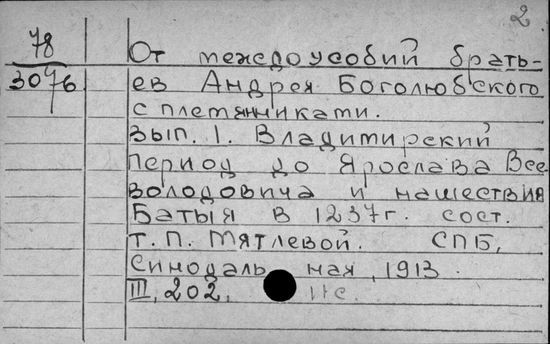 2
78
3076
От междоусобий брать-
ев Андрея Боголюбского
с племянниками.
Вып. 1. Владимирский
период до Ярослава Все
володовича и нашествия
Батыя в 1237г. сост.
т. П. Мятлевой. СПБ,
Синодаль ная, 1913.
III, 202,